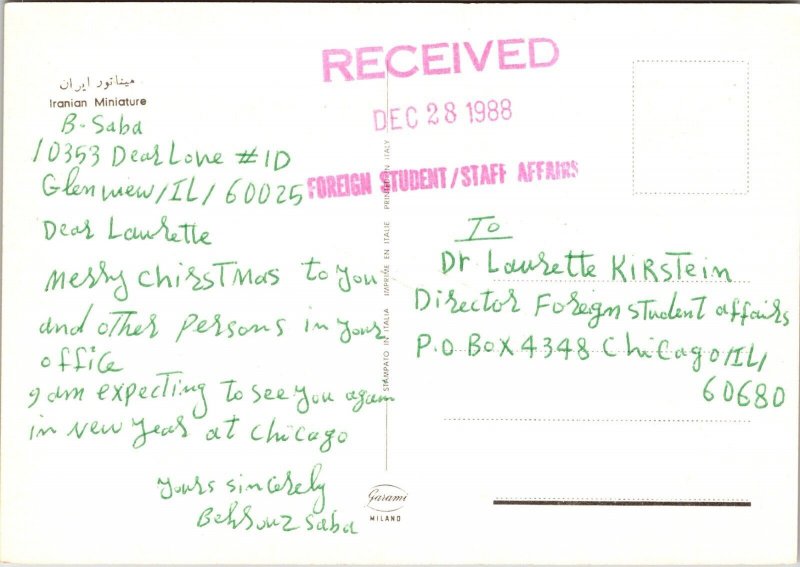 RECEIVED
DEC 28 1988
FOREIGN STUDENT/STAFF AFFAIRS
میناتور ایران
Iranian Miniature
B. Saba
10353 Dear Love #1D
Glenview/IL/60025
Dear Laurette
Merry Chirstmas to you
and other persons in your
office
I am expecting to see you again
in New Year at Chicago
Yours sincerely
Behrouz Saba
STAMPATO IN ITALIA IMPRIME EN ITALIE PRINTED IN ITALY
Garami
MILANO
To
Dr Laurette Kirstein
Director Foreign student affairs
P.O Box 4348 Chicago/IL/
60680